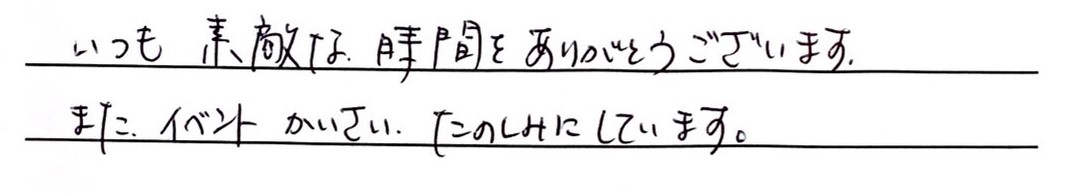 いつも 素敵な 時間を ありがとうございます.
また. イベント かいさい. たのしみにしています。